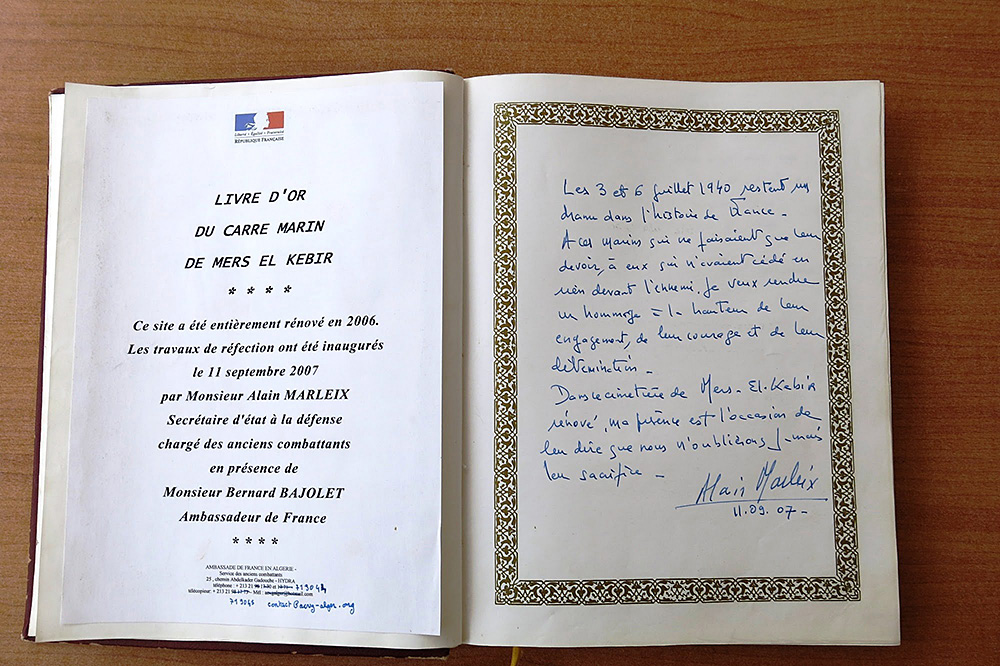 Liberté • Égalité • Fraternité
RÉPUBLIQUE FRANÇAISE
LIVRE D'OR
DU CARRE MARIN
DE MERS EL KEBIR
* * * *
Ce site a été entièrement rénové en 2006.
Les travaux de réfection ont été inaugurés
le 11 septembre 2007
par Monsieur Alain MARLEIX
Secrétaire d'état à la défense
chargé des anciens combattants
en présence de
Monsieur Bernard BAJOLET
Ambassadeur de France
* * * *
AMBASSADE DE FRANCE EN ALGERIE -
Service des anciens combattants
25, chemin Abdelkader Gadouche - HYDRA
téléphone : + 213 21
télécopieur: + 213 21 - Mél :
719045 contact@aery-alger.org
Les 3 et 6 juillet 1940 restent un
drame dans l'histoire de France -
A ces marins qui ne faisaient que leur
devoir, à eux qui n'avaient cédé en
rien devant l'ennemi, je veux rendre
un hommage à la hauteur de leur
engagement, de leur courage et de leur
détermination -
Dans le cimetière de Mers-El-Kebir
rénové, ma présence est l'occasion de
leur dire que nous n'oublierons jamais
leur sacrifice -
Alain Marleix
11.09.07 -